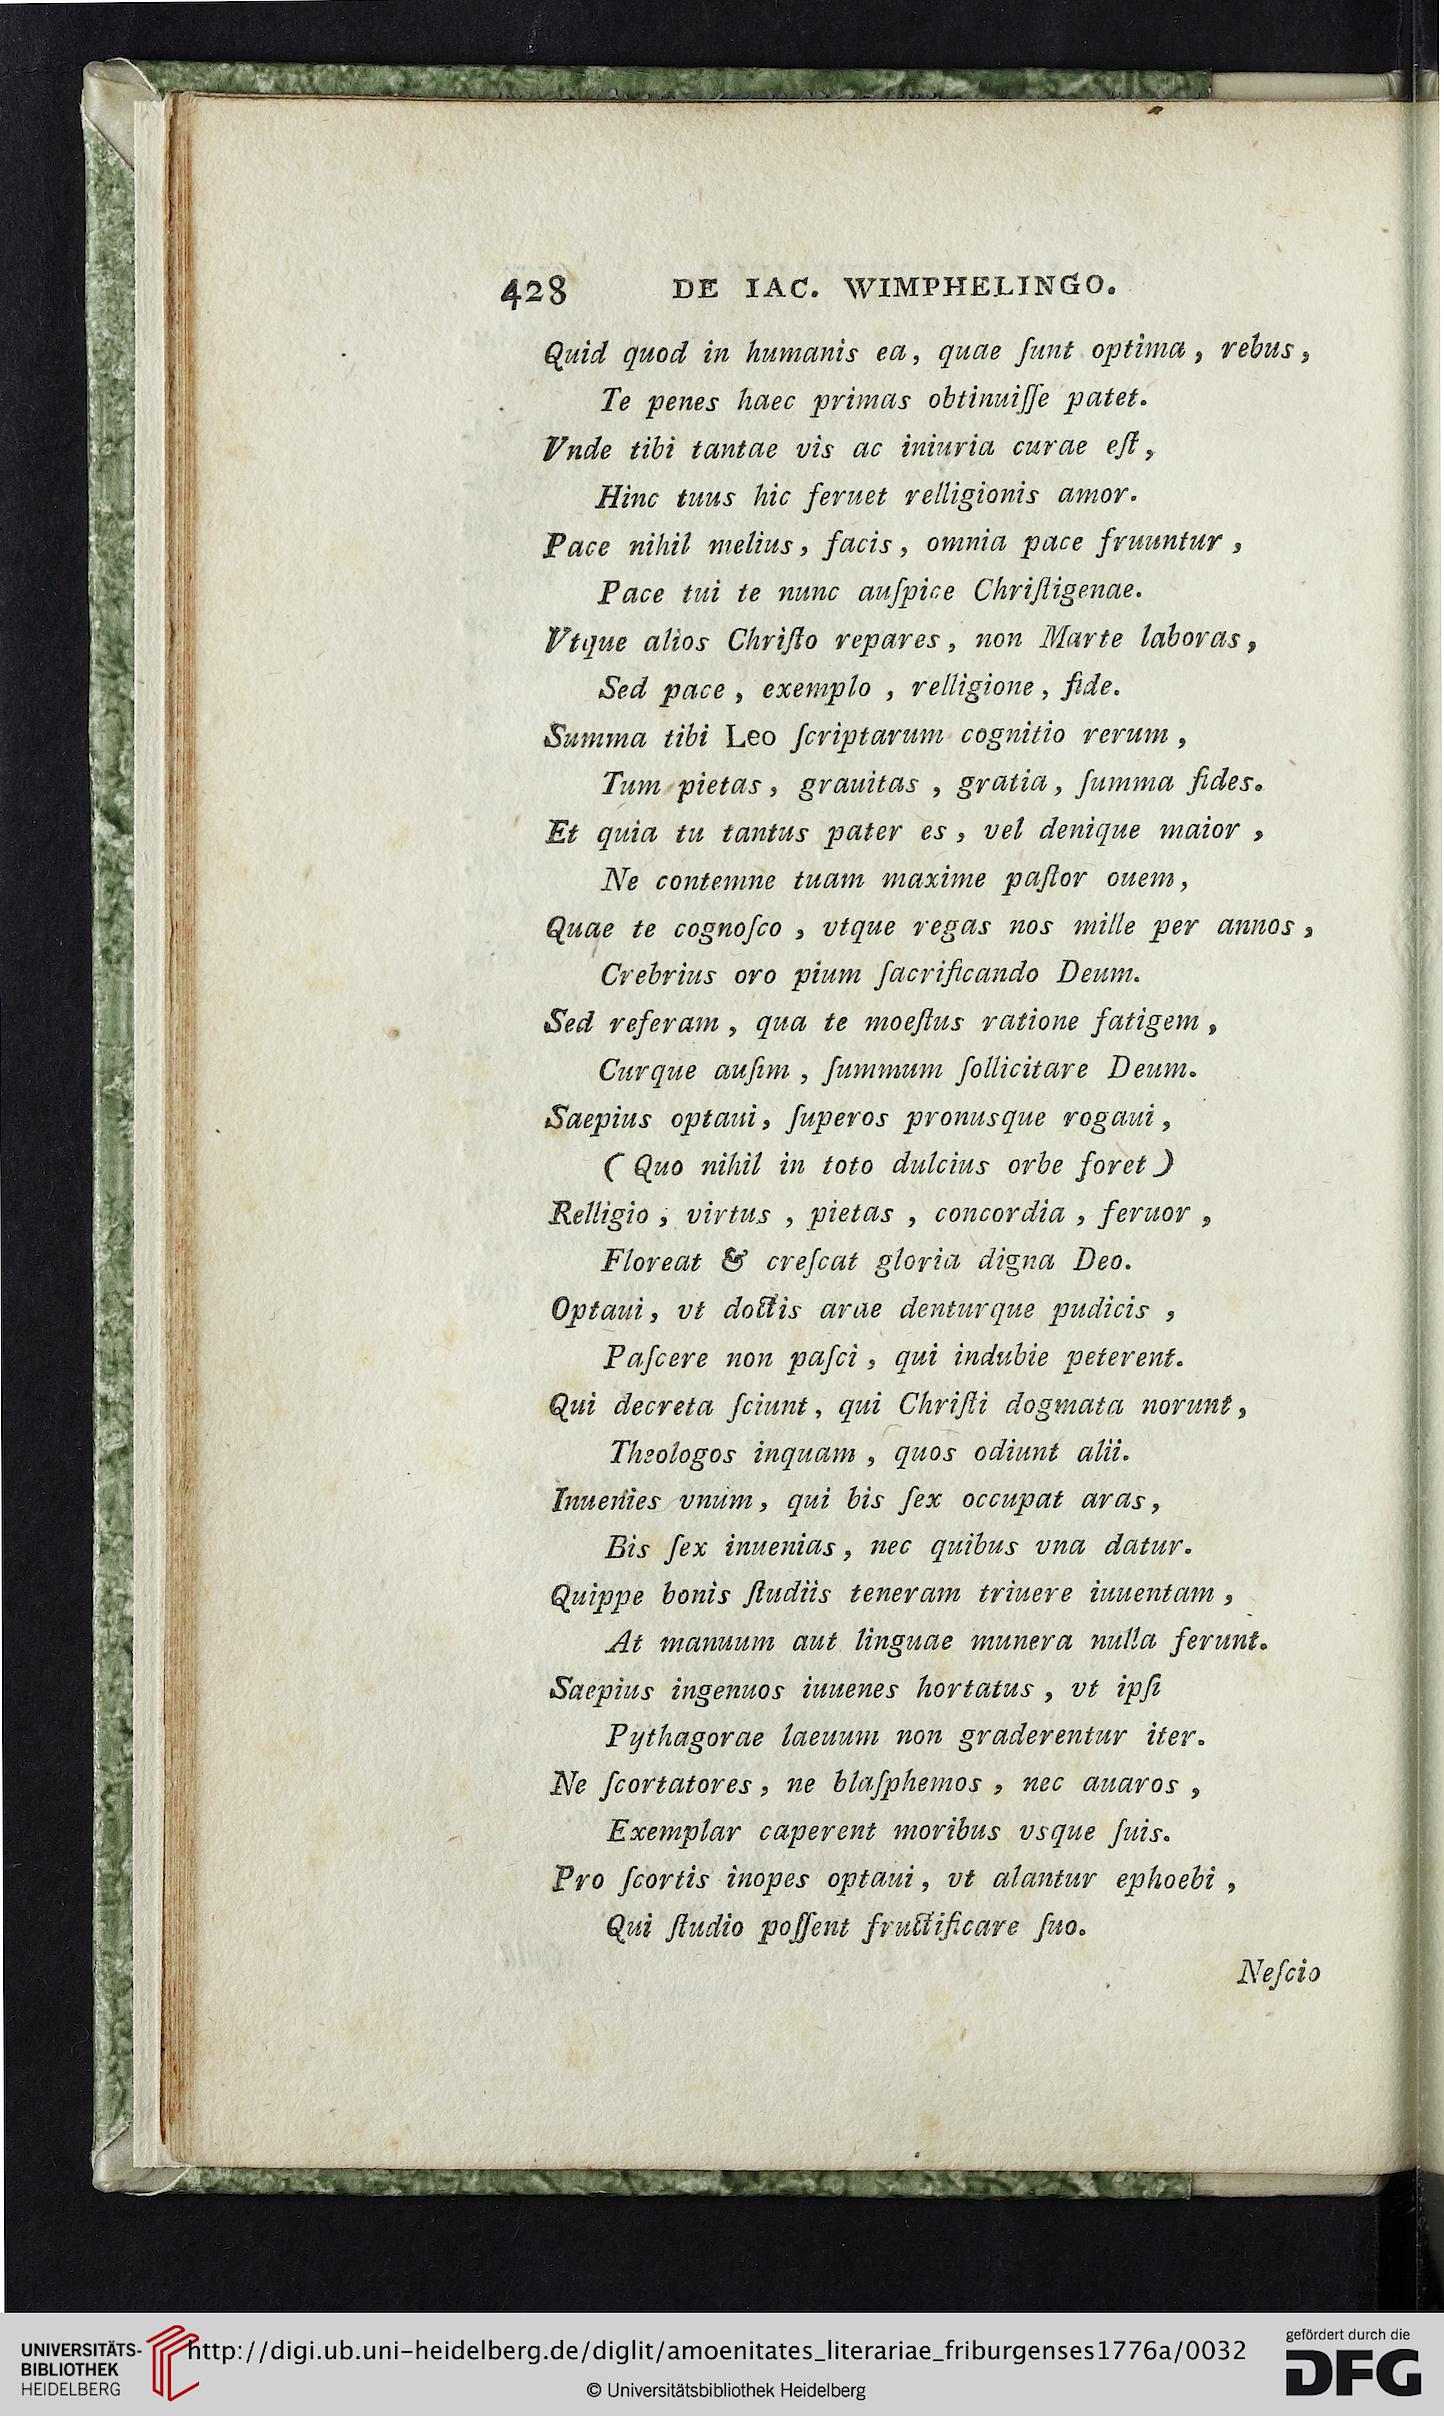 428 DE IAC. WIMPHELINGO.
Quid quod in humanis ea, quae ſunt optima, rebus,
Te penes haec primas obtinuiſſe patet.
Vnde tibi tantae vis ac iniuria curae eſt,
Hinc tuus hic feruet relligionis amor.
Pace nihil melius, facis, omnia pace fruuntur,
Pace tui te nunc auſpice Chriſtigenae.
Vtque alios Chriſto repares, non Marte laboras,
Sed pace, exemplo, relligione, fide.
Summa tibi Leo ſcriptarum cognitio rerum,
Tum pietas, grauitas, gratia, ſumma fides.
Et quia tu tantus pater es, vel denique maior,
Ne contemne tuam maxime paſtor ouem,
Quae te cognoſco, vtque regas nos mille per annos,
Crebrius oro pium ſacrificando Deum.
Sed referam, qua te moeſtus ratione fatigem,
Curque auſim, ſummum ſollicitare Deum.
Saepius optaui, ſuperos pronusque rogaui,
(Quo nihil in toto dulcius orbe foret)
Relligio, virtus, pietas, concordia, feruor,
Floreat & creſcat gloria digna Deo.
Optaui, vt doctis arae denturque pudicis,
Paſcere non paſci, qui indubie peterent.
Qui decreta ſciunt, qui Chriſti dogmata norunt,
Theologos inquam, quos odiunt alii.
Inuenies vnum, qui bis ſex occupat aras,
Bis ſex inuenias, nec quibus vna datur.
Quippe bonis ſtudiis teneram triuere iuuentam,
At manuum aut linguae munera nulla ferunt.
Saepius ingenuos iuuenes hortatus, vt ipſi
Pythagorae laeuum non graderentur iter.
Ne ſcortatores, ne blaſphemos, nec auaros,
Exemplar caperent moribus vsque ſuis.
Pro ſcortis inopes optaui, vt alantur ephoebi,
Qui ſtudio poſſent fructificare ſuo.
Neſcio
UNIVERSITÄTS-
BIBLIOTHEK
HEIDELBERG
http://digi.ub.uni-heidelberg.de/diglit/amoenitates_literariae_friburgenses1776a/0032
© Universitätsbibliothek Heidelberg
gefördert durch die
DFG